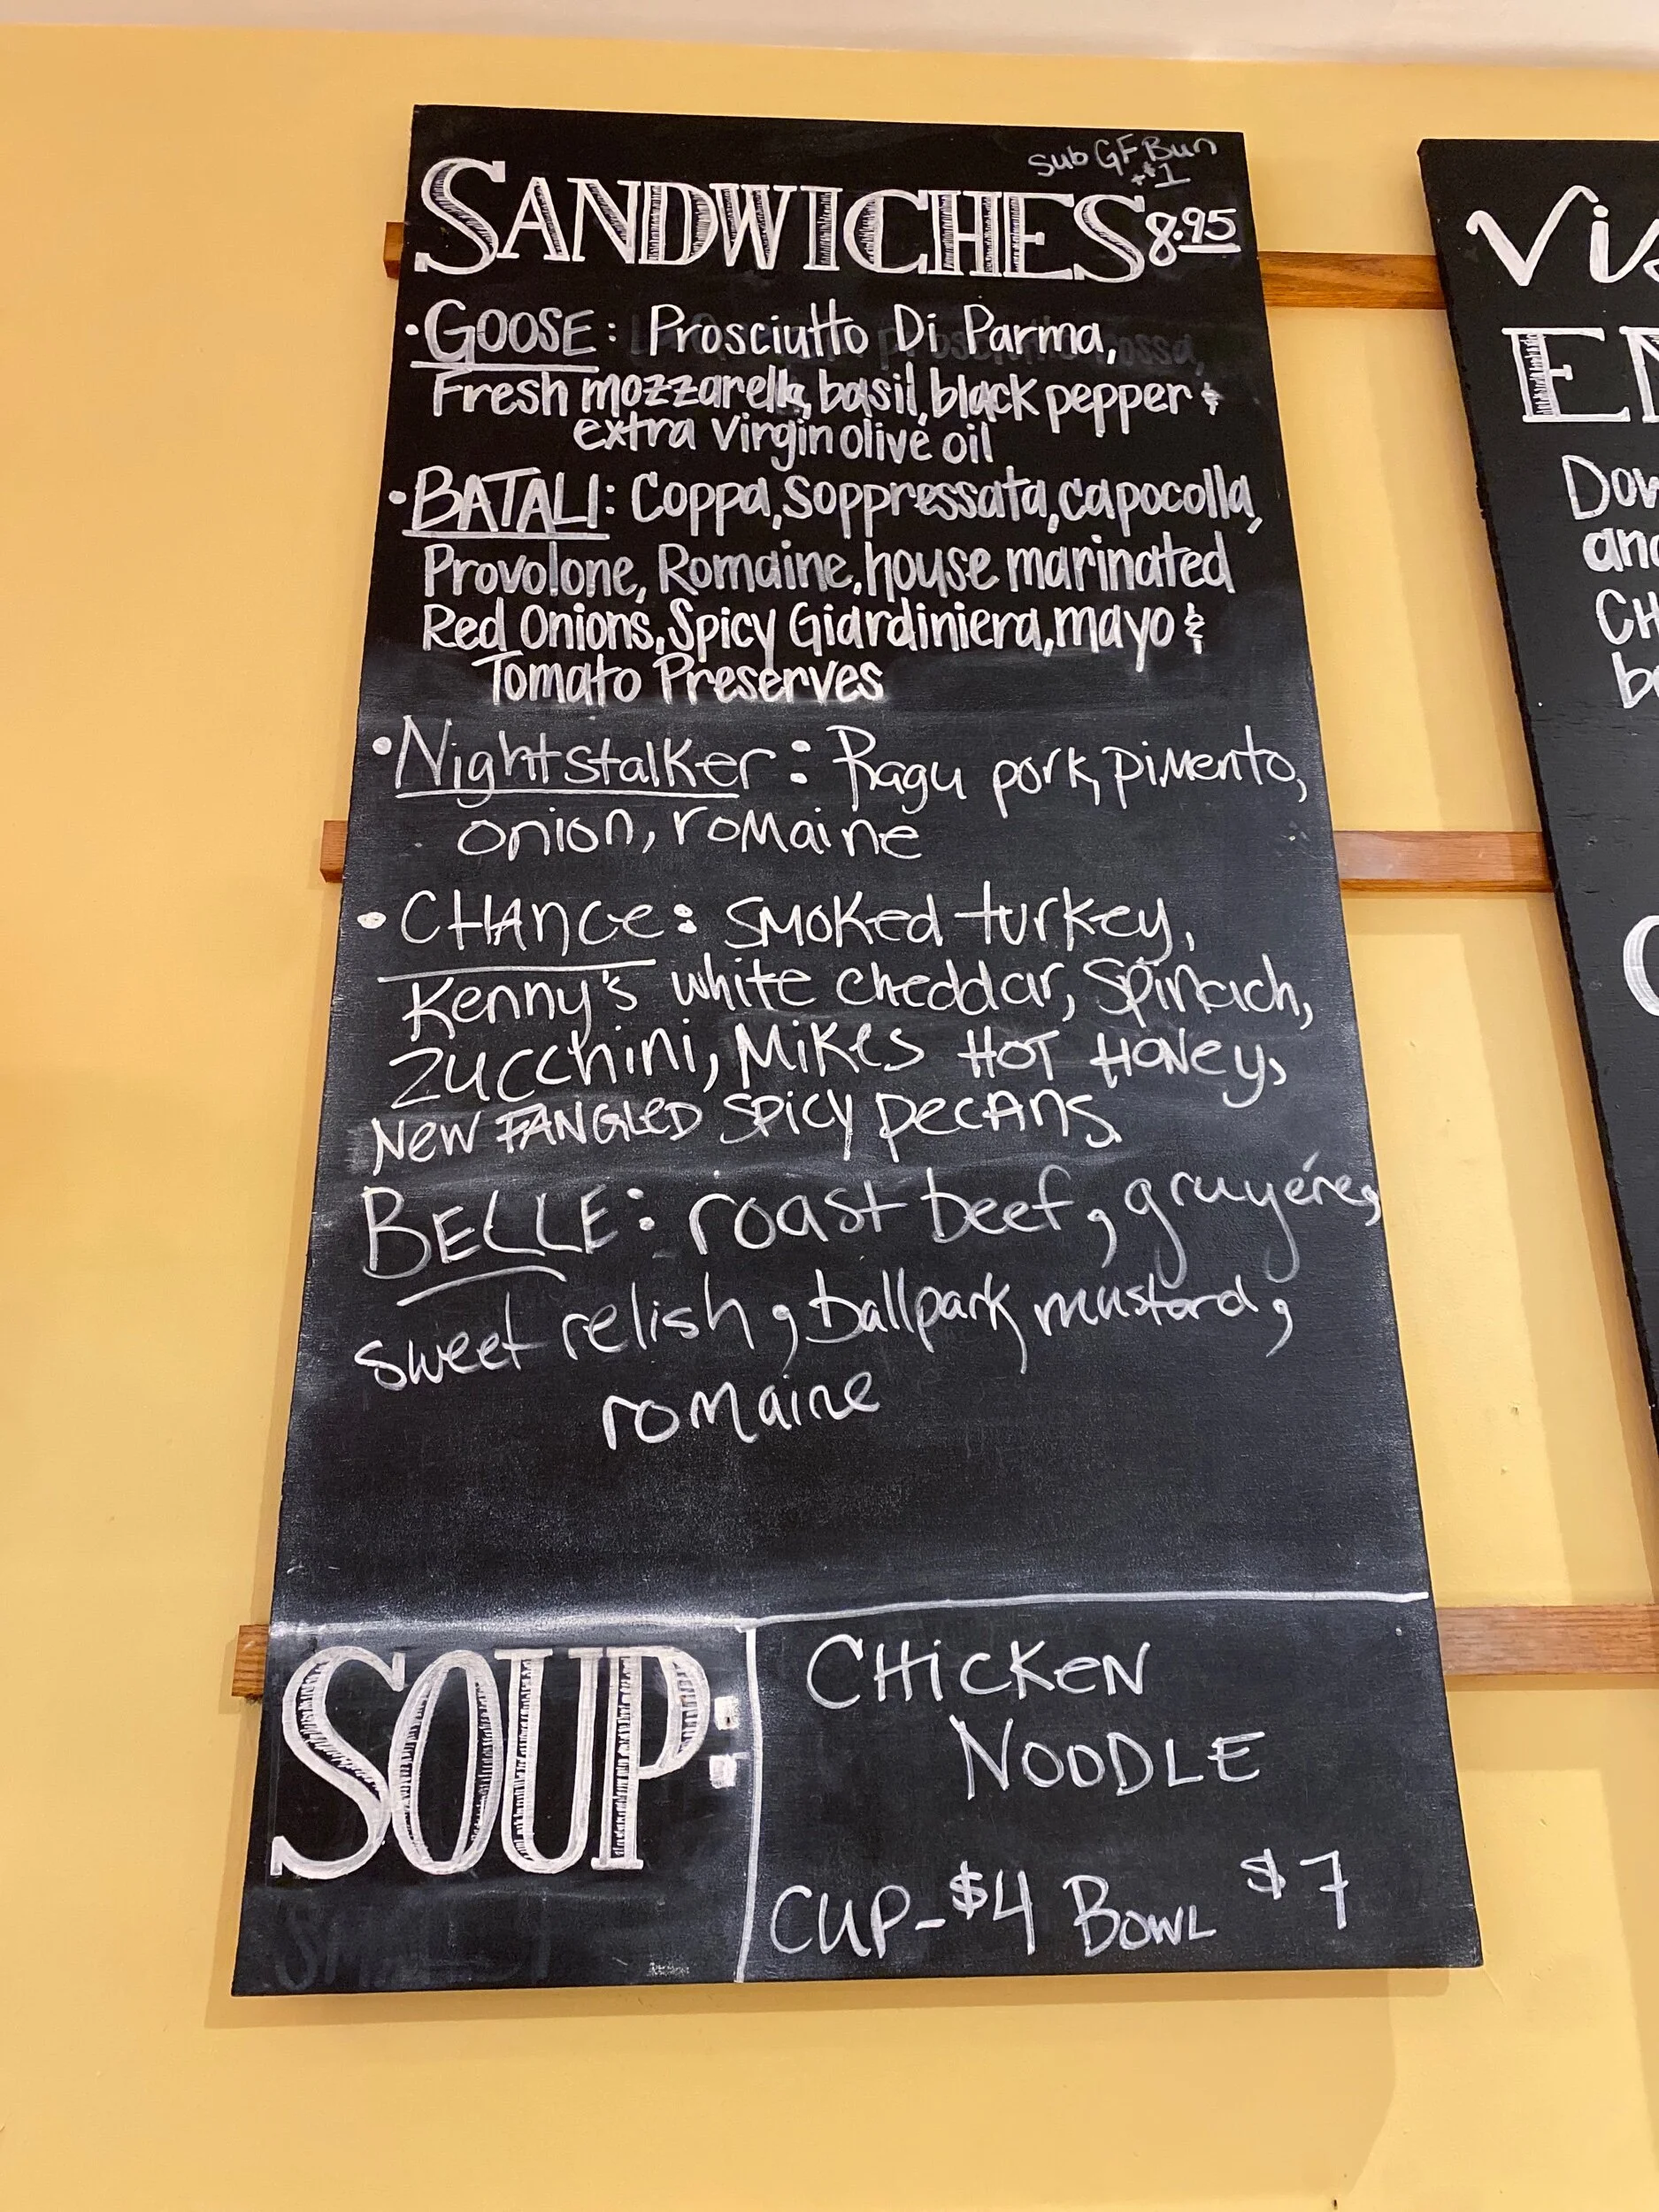 Sub GF Bun
+$1
SANDWICHES 8.95
• GOOSE: Prosciutto Di Parma,
Fresh mozzarella, basil, black pepper &
extra virgin olive oil
• BATALI: Coppa, Soppressata, capocolla,
Provolone, Romaine, house marinated
Red Onions, Spicy Giardiniera, mayo &
Tomato Preserves
• Nightstalker: Ragu pork, pimento,
onion, romaine
• CHANCE: smoked turkey,
Kenny's white cheddar, Spinach,
Zucchini, Mikes HOT HONEY,
NEW FANGLED SPICY PECANS.
BELLE: roast beef, gruyére,
sweet relish, ballpark mustard,
romaine
SOUP:
CHICKEN
NOODLE
CUP-$4 BOWL $7